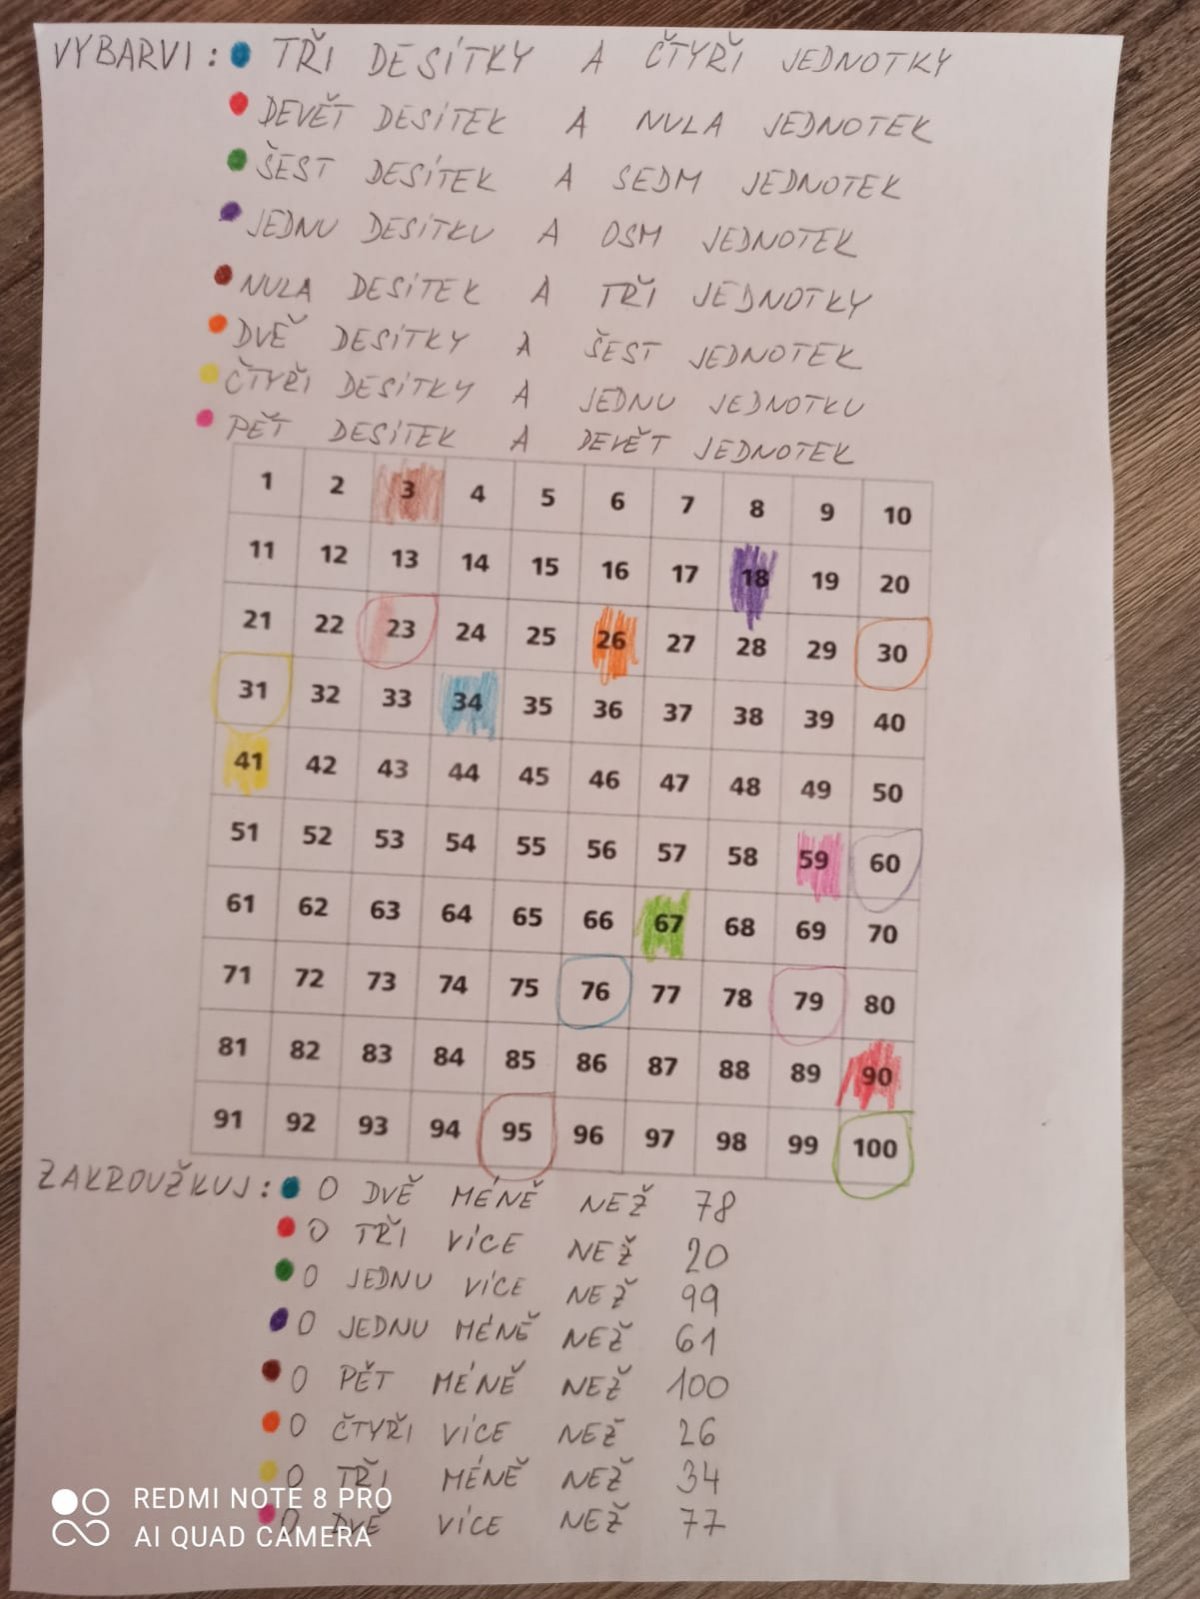 VYBARVI: TŘI DESÍTKY A ČTYŘI JEDNOTKY
DEVĚT DESÍTEK A NULA JEDNOTEK
ŠEST DESÍTEK A SEDM JEDNOTEK
JEDNU DESÍTKU A OSM JEDNOTEK
NULA DESÍTEK A TŘI JEDNOTKY
DVĚ DESÍTKY A ŠEST JEDNOTEK
ČTYŘI DESÍTKY A JEDNU JEDNOTKU
PĚT DESÍTEK A DEVĚT JEDNOTEK
1 2 3 4 5 6 7 8 9 10
11 12 13 14 15 16 17 18 19 20
21 22 23 24 25 26 27 28 29 30
31 32 33 34 35 36 37 38 39 40
41 42 43 44 45 46 47 48 49 50
51 52 53 54 55 56 57 58 59 60
61 62 63 64 65 66 67 68 69 70
71 72 73 74 75 76 77 78 79 80
81 82 83 84 85 86 87 88 89 90
91 92 93 94 95 96 97 98 99 100
ZAKROUŽKUJ: O DVĚ MÉNĚ NEŽ 78
O TŘI VÍCE NEŽ 20
O JEDNU VÍCE NEŽ 99
O JEDNU MÉNĚ NEŽ 61
O PĚT MÉNĚ NEŽ 100
O ČTYŘI VÍCE NEŽ 26
O TŘI MÉNĚ NEŽ 34
O DVĚ VÍCE NEŽ 77
REDMI NOTE 8 PRO
AI QUAD CAMERA